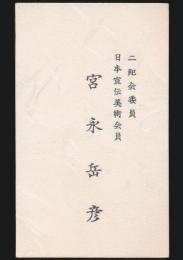 二紀会委員
日本宣伝美術会員
宮永岳彦